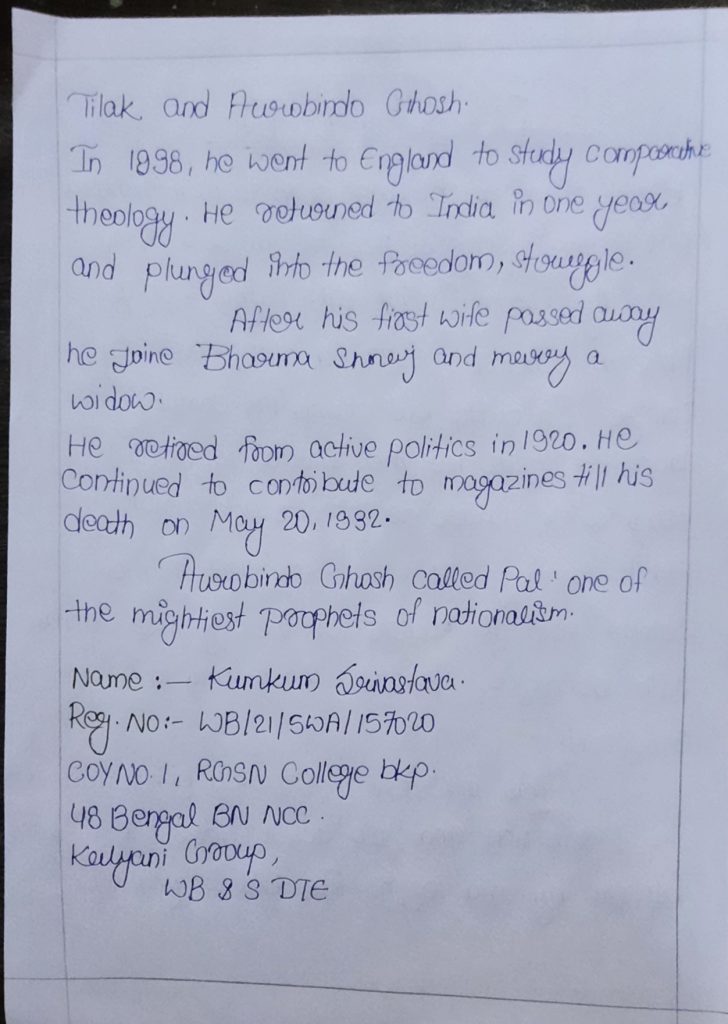 Tilak and Aurobindo Ghosh.
In 1898, he went to England to study comparative
theology. He returned to India in one year
and plunged into the freedom, struggle.
After his first wife passed away
he joine Bharma and merry a
widow.
He retired from active politics in 1920. He
continued to contribute to magazines till his
death on May 20, 1932.
Aurobindo Ghosh called Pal ' one of
the mightiest prophets of nationalism.
Name :- Kumkum Srivastava.
Reg. No:- WB/21/SWA/157020
COY NO. 1, RGSN College bkp.
48 Bengal BN NCC.
Kalyani Group,
WB & S DTE